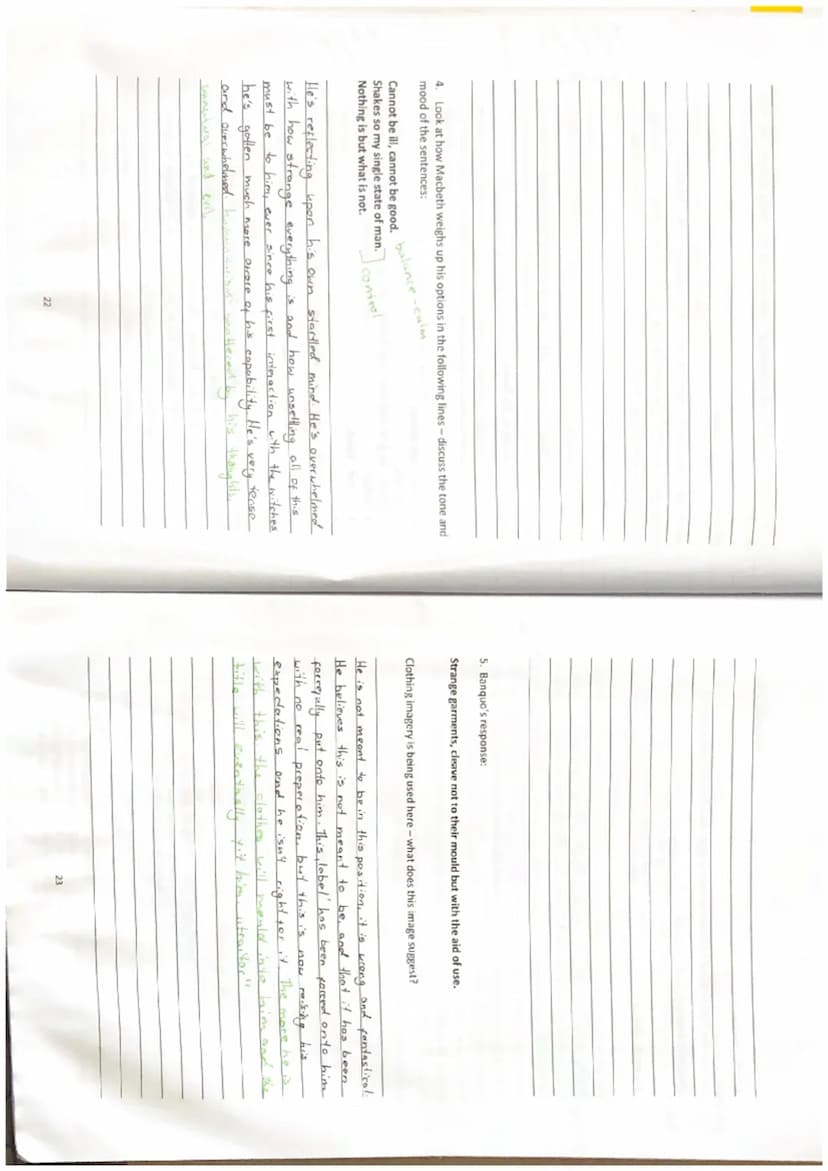 4. Look at how Macbeth weighs up his options in the following lines – discuss the tone and
mood of the sentences:
Cannot be ill, cannot be good. balance - calm
Shakes so my single state of man. ] control
Nothing is but what is not.
He's reflecting upon his own startled mind. He's overwhelmed
with how strange everything is and how unsettling all of this
must be to him, ever since his first interaction with the witches
he's gotten much more aware of his capability. He's very tense
and overwhelmed. by his thoughts.
22
5. Banquo's response:
Strange garments, cleave not to their mould but with the aid of use.
Clothing imagery is being used here – what does this image suggest?
He is not meant to be in this position, it is wrong and fantastical.
He believes this is not meant to be, and that it has been
forcefully put onto him. This 'label' has been forced onto him
with no real preperation, but this is now raising his
expectations and he isn't right for it. The more he is
with this the clothes will mould into him and the
title will eventually fit him. "traitor"
23